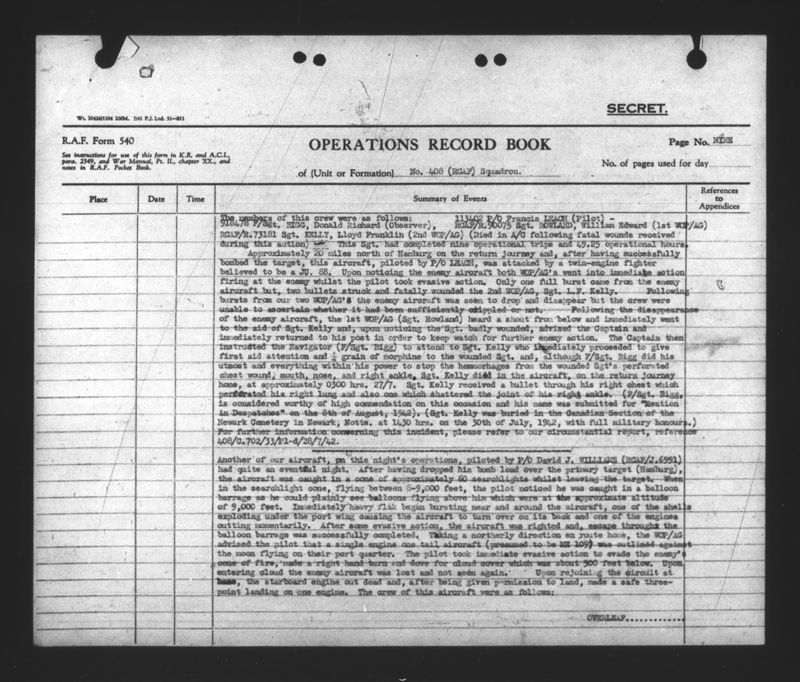 SECRET.
Wt. 30426/1104 200M. 7/41 P.J. Ltd. 51—811
R.A.F. Form 540
See instructions for use of this form in K.R. and A.C.I.,
para. 2349, and War Manual, Pt. II., chapter XX., and
notes in R.A.F. Pocket Book.
OPERATIONS RECORD BOOK
of (Unit or Formation) No. 408 (RCAF) Squadron.
Page No. NINE
No. of pages used for day
Place Date Time Summary of Events References to Appendices
The members of this crew were as follows: 113402 P/O Francis LEACH (Pilot) -
918478 F/Sgt. BIGG, Donald Richard (Observer), RCAF/R.90075 Sgt. ROWLAND, William Edward (1st WOP/AG)
RCAF/R.73181 Sgt. KELLY, Lloyd Franklin (2nd WOP/AG) (Died in A/C following fatal wounds received
during this action) This Sgt. had completed nine operational trips and 49.25 operational hours.
Approximately 20 miles north of Hamburg on the return journey and, after having successfully
bombed the target, this aircraft, piloted by P/O LEACH, was attacked by a twin-engine fighter
believed to be a JU. 88. Upon noticing the enemy aircraft both WOP/AG's went into immediate action
firing at the enemy whilst the pilot took evasive action. Only one full burst came from the enemy
aircraft but, two bullets struck and fatally wounded the 2nd WOP/AG, Sgt. L.F. Kelly. Following
bursts from our two WOP/AG'S the enemy aircraft was seen to drop and disappear but the crew were
unable to ascertain whether it had been sufficiently crippled or not. Following the disappearance
of the enemy aircraft, the 1st WOP/AG (Sgt. Rowland) heard a shout from below and immediately went
to the aid of Sgt. Kelly and, upon noticing the Sgt. badly wounded, advised the Captain and
immediately returned to his post in order to keep watch for further enemy action. The Captain then
instructed the Navigator (F/Sgt. Bigg) to attend to Sgt. Kelly who immediately proceeded to give
first aid attention and ¼ grain of morphine to the wounded Sgt. and, although F/Sgt. Bigg did his
utmost and everything within his power to stop the hemorrhages from the wounded Sgt's perforated
chest wound, mouth, nose, and right ankle, Sgt. Kelly died in the aircraft, on the return journey
home, at approximately 0300 hrs. 27/7. Sgt. Kelly received a bullet through his right chest which
perforated his right lung and also one which shattered the joint of his right ankle. (F/Sgt. Bigg,
is considered worthy of high commendation on this occasion and his name was submitted for "Mention
in Despatches" on the 8th of August, 1942). (Sgt. Kelly was buried in the Canadian Section of the
Newark Cemetery in Newark, Notts. at 1430 hrs. on the 30th of July, 1942, with full military honours.)
For further information concerning this incident, please refer to our circumstantial report, reference
408/C.702/33/P1-d/28/7/42.
Another of our aircraft, on this night's operations, piloted by P/O David J. WILLIAMS (RCAF/J.6991)
had quite an eventful night. After having dropped his bomb load over the primary target (Hamburg),
the aircraft was caught in a cone of approximately 60 searchlights whilst leaving the target. When
in the searchlight cone, flying between 8-9,000 feet, the pilot noticed he was caught in a balloon
barrage as he could plainly see balloons flying above him which were at the approximate altitude
of 9,000 feet. Immediately heavy flak began bursting near and around the aircraft, one of the shells
exploding under the port wing causing the aircraft to turn over on its back and one of the engines
cutting momentarily. After some evasive action, the aircraft was righted and, escape through the
balloon barrage was successfully completed. Taking a northerly direction on route home, the WOP/AG
advised the pilot that a single engine one tail aircraft (presumed to be ME 109) was outlined against
the moon flying on their port quarter. The pilot took immediate evasive action to evade the enemy's
cone of fire, made a right hand turn and dove for cloud cover which was about 300 feet below. Upon
entering cloud the enemy aircraft was lost and not seen again. Upon rejoining the circuit at
base, the starboard engine cut dead and, after being given permission to land, made a safe three-
point landing on one engine. The crew of this aircraft were as follows:
OVERLEAF.............